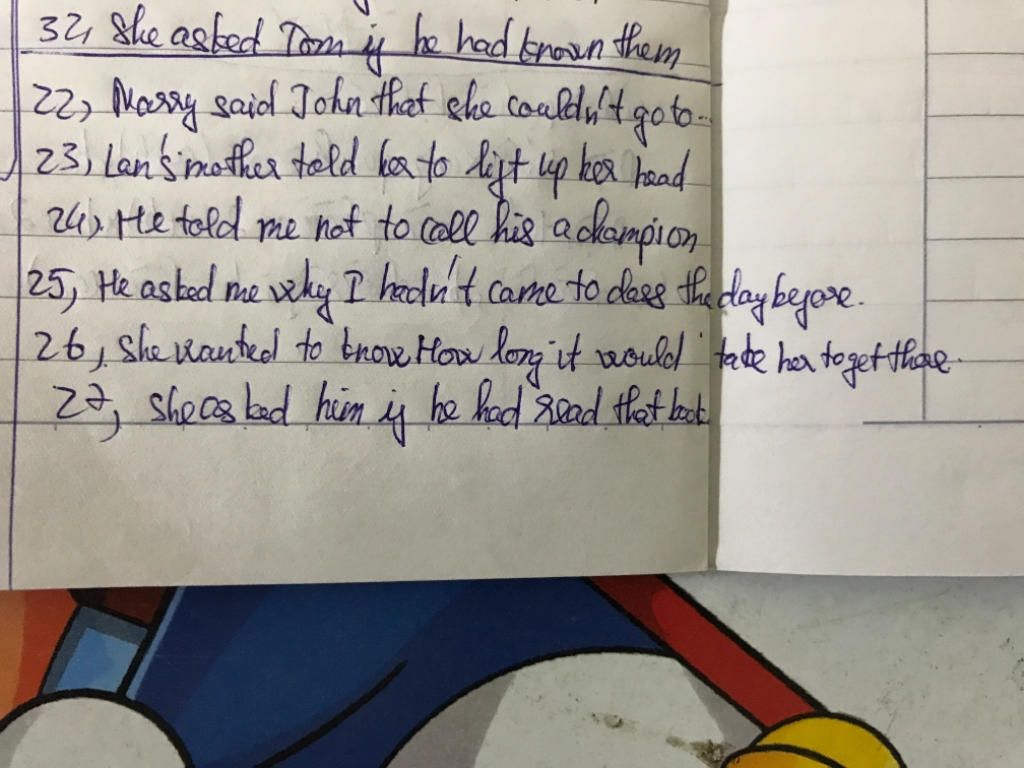 32, She asked Tom if he had known them
22, Marry said John that she couldn't go to...
23, Lan's mother told her to lift up her head
24, He told me not to call his a champion
25, He asked me why I hadn't came to class the day before.
26, She wanted to know How long it would take her to get there.
27, She asked him if he had read that book